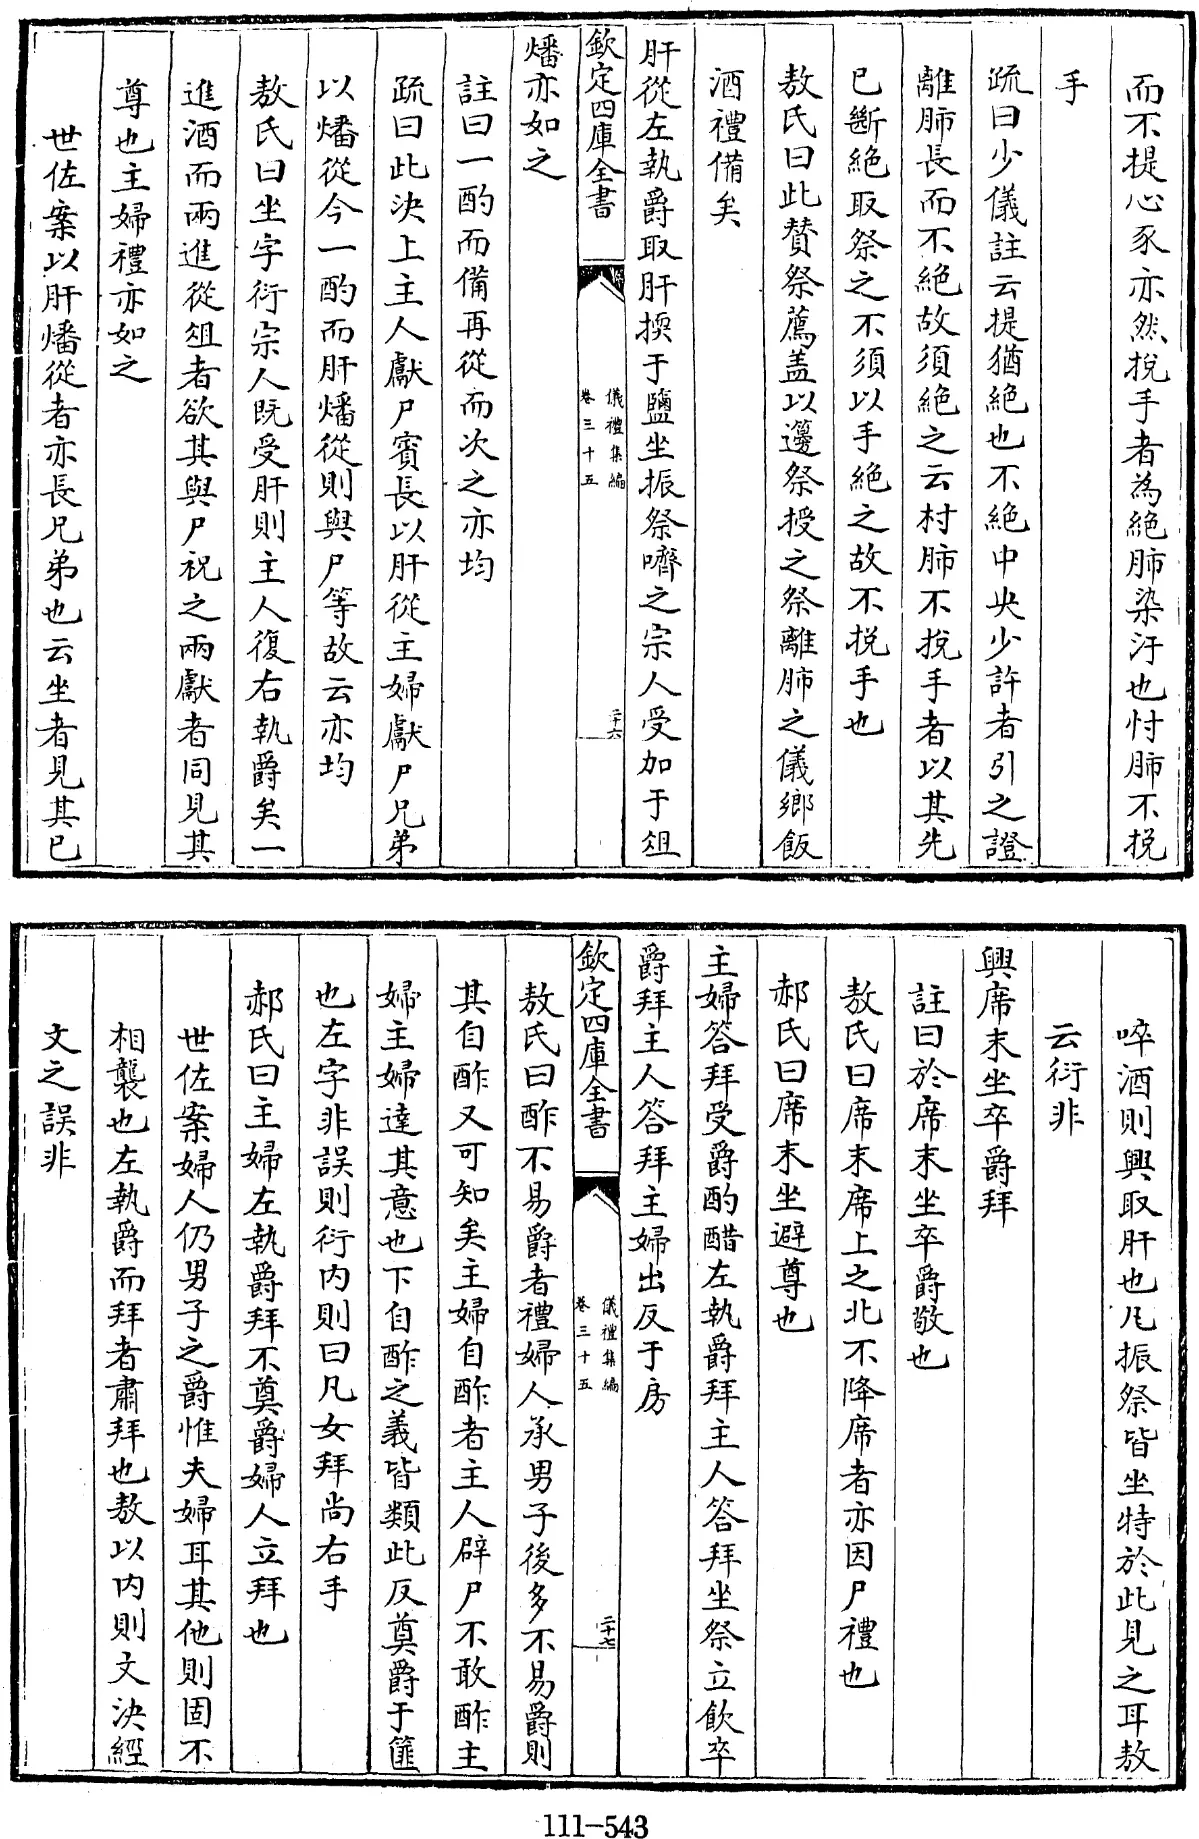 而不提心豕亦然挩手者為絶肺染汙也忖肺不挩
手
疏曰少儀註云提猶絶也不絶中央少許者引之證
離肺長而不絶故須絶之云忖肺不挩手者以其先
已斷絶取祭之不須以手絶之故不挩手也
敖氏曰此贊祭薦盖以籩祭授之祭離肺之儀鄉飯
酒禮備矣
肝從左執爵取肝擩于鹽坐振祭嚌之宗人受加于俎
欽定四庫全書
儀禮集編
卷三十五
二十六
燔亦如之
註曰一酌而備再從而次之亦均
疏曰此決上主人獻尸賓長以肝從主婦獻尸兄弟
以燔從今一酌而肝燔從則與尸等故云亦均
敖氏曰坐字衍宗人既受肝則主人復右執爵矣一
進酒而兩進從俎者欲其與尸祝之兩獻者同見其
尊也主婦禮亦如之
世佐案以肝燔從者亦長兄弟也云坐者見其已
啐酒則興取肝也凡振祭皆坐特於此見之耳敖
云衍非
興席末坐卒爵拜
註曰於席末坐卒爵敬也
敖氏曰席末席上之北不降席者亦因尸禮也
郝氏曰席末坐避尊也
主婦答拜受爵酌醋左執爵拜主人答拜坐祭立飲卒
爵拜主人答拜主婦出反于房
欽定四庫全書
儀禮集編
卷三十五
二十七
敖氏曰酢不易爵者禮婦人承男子後多不易爵則
其自酢又可知矣主婦自酢者主人辟尸不敢酢主
婦主婦達其意也下自酢之義皆類此反奠爵于篚
也左字非誤則衍内則曰凡女拜尚右手
郝氏曰主婦左執爵拜不奠爵婦人立拜也
世佐案婦人仍男子之爵惟夫婦耳其他則固不
相襲也左執爵而拜者肅拜也敖以内則文決經
文之誤非
111-543